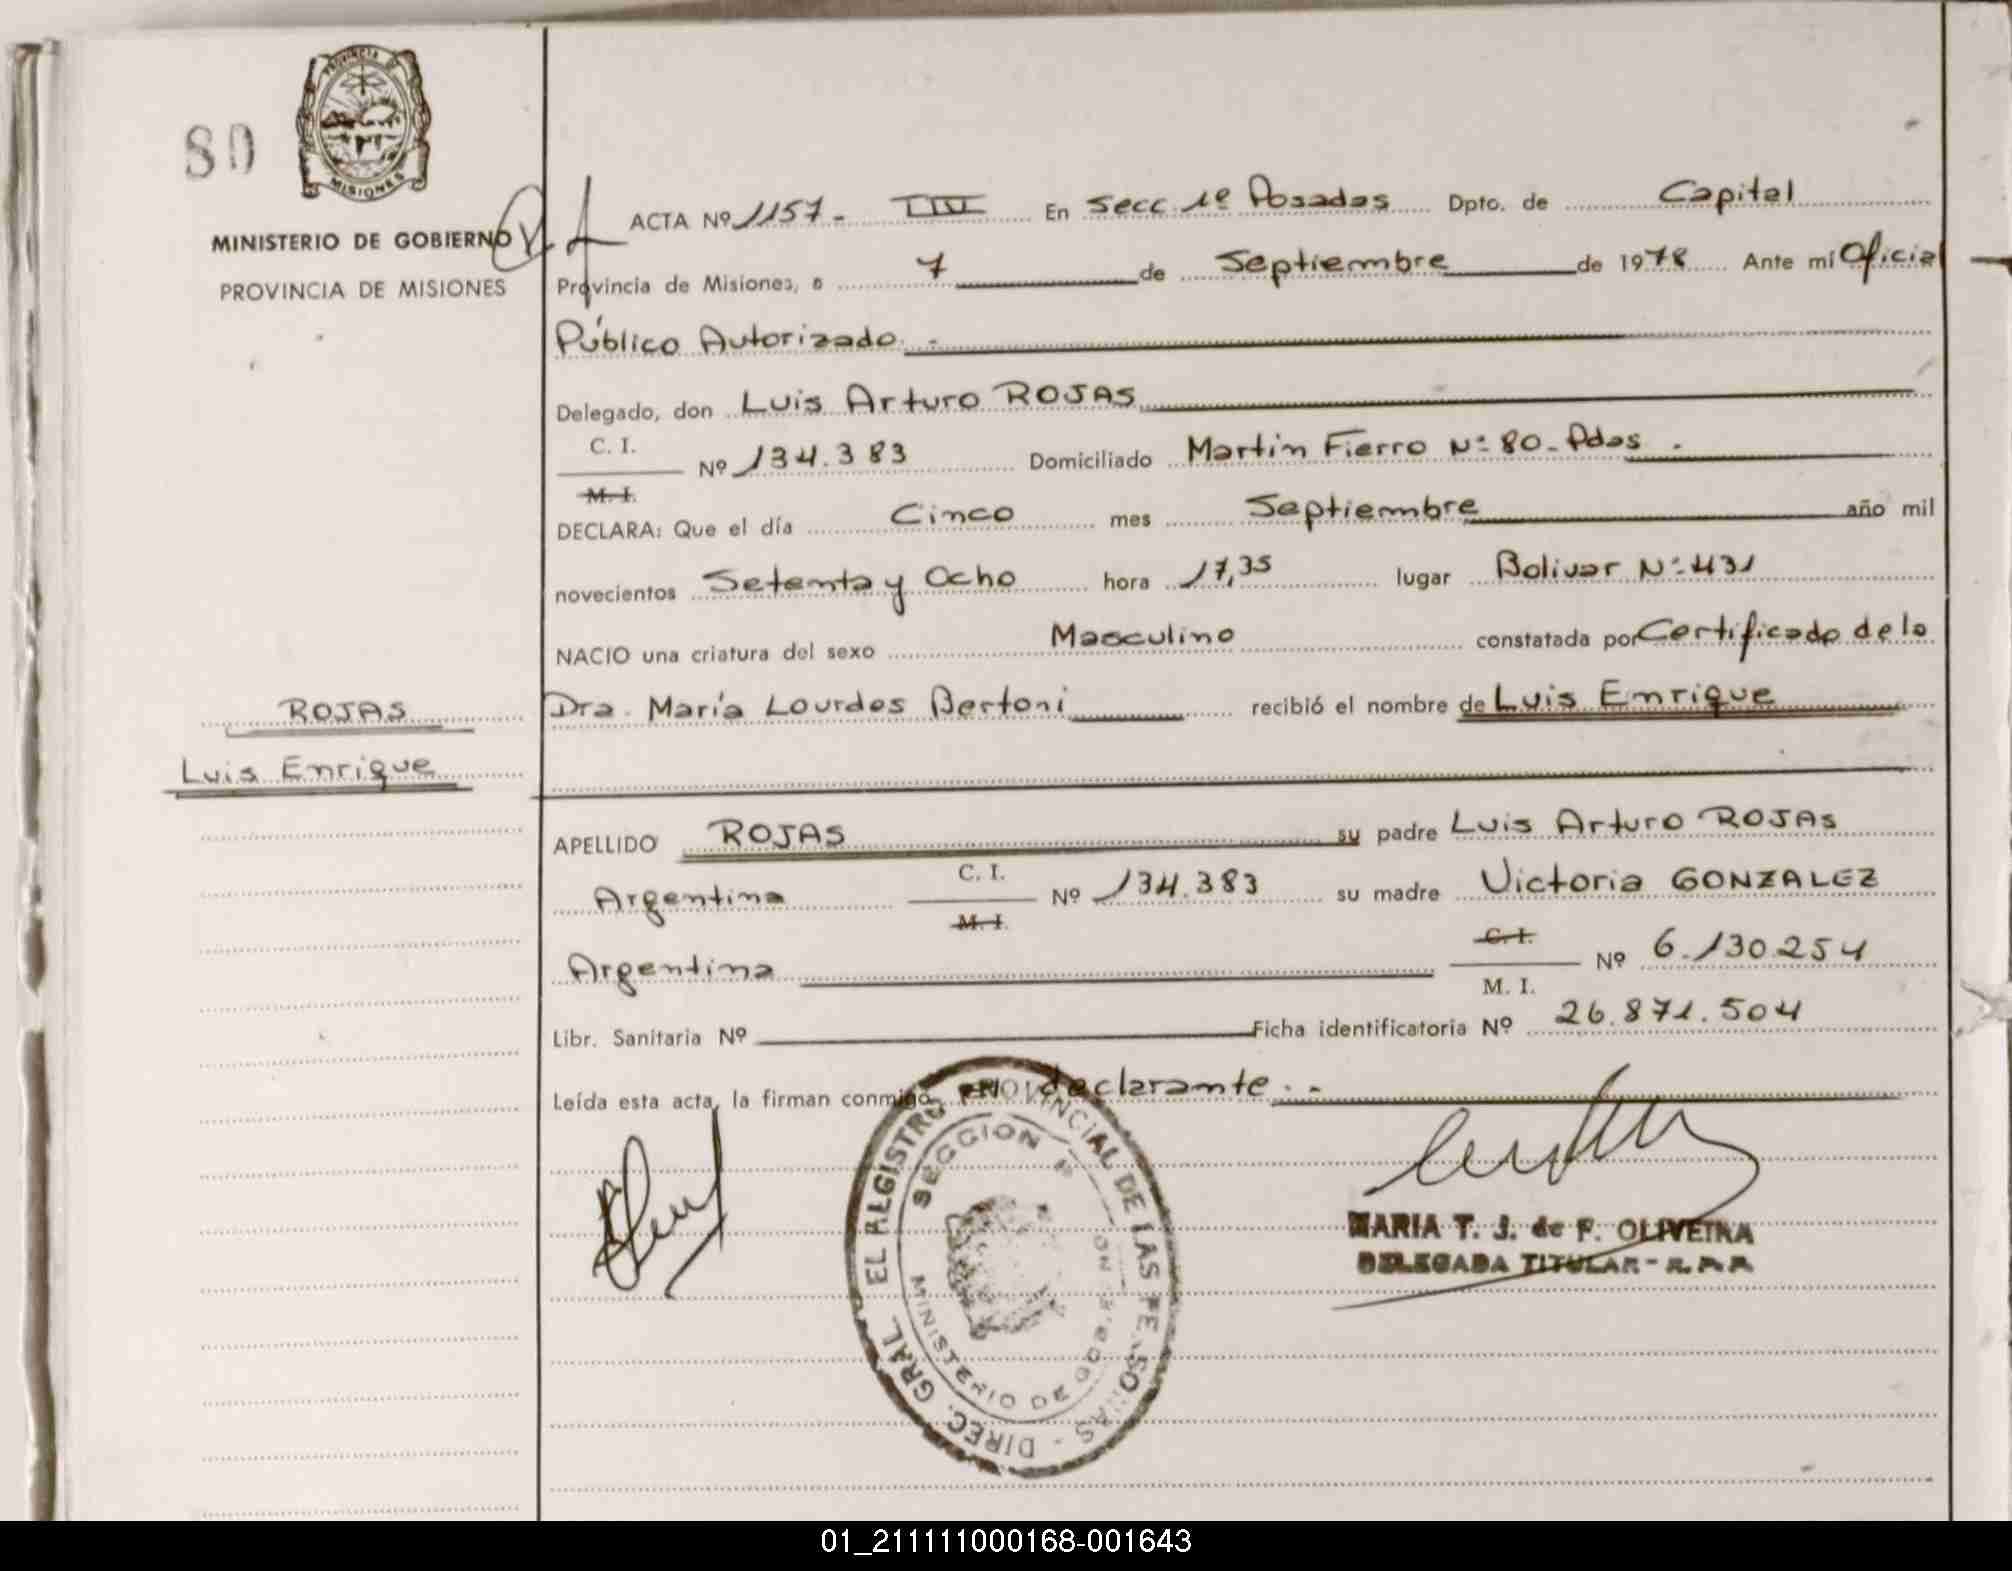 PROVINCIA DE
MISIONES
80
MINISTERIO DE GOBIERNO
PROVINCIA DE MISIONES
ROJAS
Luis Enrique
ACTA Nº 1157.- III En Secc 1º Posadas Dpto. de Capital
Provincia de Misiones, a 7 de Septiembre de 1978 Ante mí Oficial
Público Autorizado.-
Delegado, don Luis Arturo ROJAS
C. I.
Nº 134.383 Domiciliado Martin Fierro Nº 80- Pdas.
M. I.
DECLARA: Que el día Cinco mes Septiembre año mil
novecientos Setenta y Ocho hora 17,35 lugar Bolivar Nº 431
NACIO una criatura del sexo Masculino constatada por Certificado de la
Dra. María Lourdes Bertoni recibió el nombre de Luis Enrique
APELLIDO ROJAS su padre Luis Arturo ROJAS
C. I.
Argentina Nº 134.383 su madre Victoria GONZALEZ
M. I.
C. I.
Argentina Nº 6.130.254
M. I.
Libr. Sanitaria Nº Ficha identificatoria Nº 26.871.504
Leída esta acta, la firman conmigo declarante.-
DIREC. GRAL. EL REGISTRO PROVINCIAL DE LAS PERSONAS -
SECCION
MINISTERIO DE GOBIERNO
MARIA T. J. de F. OLIVEIRA
DELEGADA TITULAR - R.P.P.
01_211111000168-001643